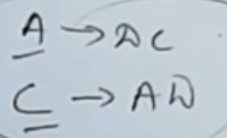 A → DC
C → AD